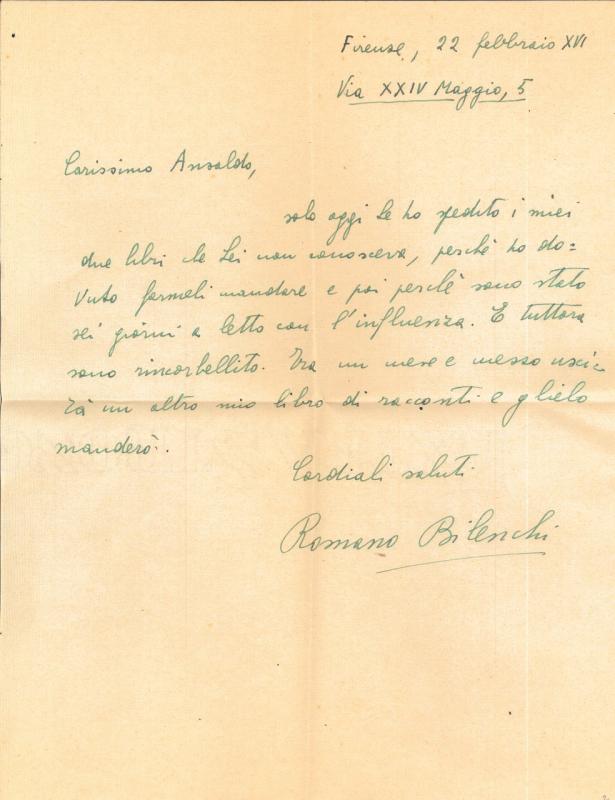 Firenze, 22 febbraio XVI
Via XXIV Maggio, 5
Carissimo Ansaldo,
solo oggi Le ho spedito i miei
due libri che Lei non conosceva, perché ho do=
vuto farmeli mandare e poi perchè sono stato
sei giorni a letto con l'influenza. E tuttora
sono rincorbellito. Tra un mese e mezzo usci=
rà un altro mio libro di racconti e glielo
manderò.
Cordiali saluti
Romano Bilenchi